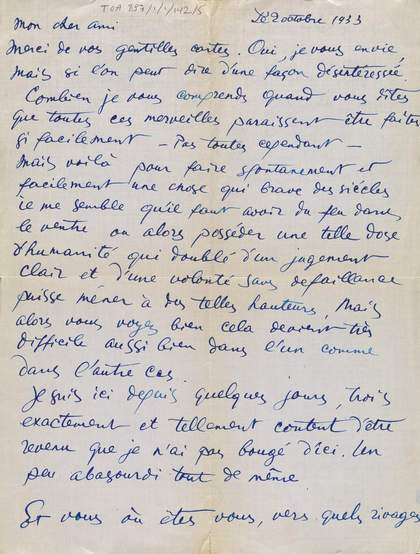 TGA 853/1/1/142/5
Mon cher ami 2 octobre 1933
Merci de vos gentilles cartes. Oui, je vous envie
mais si l'on peut dire d'une façon désintéressée
Combien je vous comprends quand vous dites
que toutes ces merveilles paraissent être faites
si facilement — Pas toutes cependant —
Mais voilà pour faire spontanement et
facilement une chose qui brave des siècles
il me semble qu'il faut avoir du feu dans
le ventre ou alors posséder une telle dose
d'humanité qui doublé d'un jugement
clair et d'une volonté sans defaillance
puisse mener à des telles hauteurs, Mais
alors vous voyez bien cela devient très
difficile aussi bien dans l'un comme
dans l'autre cas.
Je suis ici depuis quelques jours, trois
exactement et tellement content d'être
revenu que je n'ai pas bougé d'ici. Un
peu abasourdi tout de même
Et vous où êtes vous, vers quels rivages